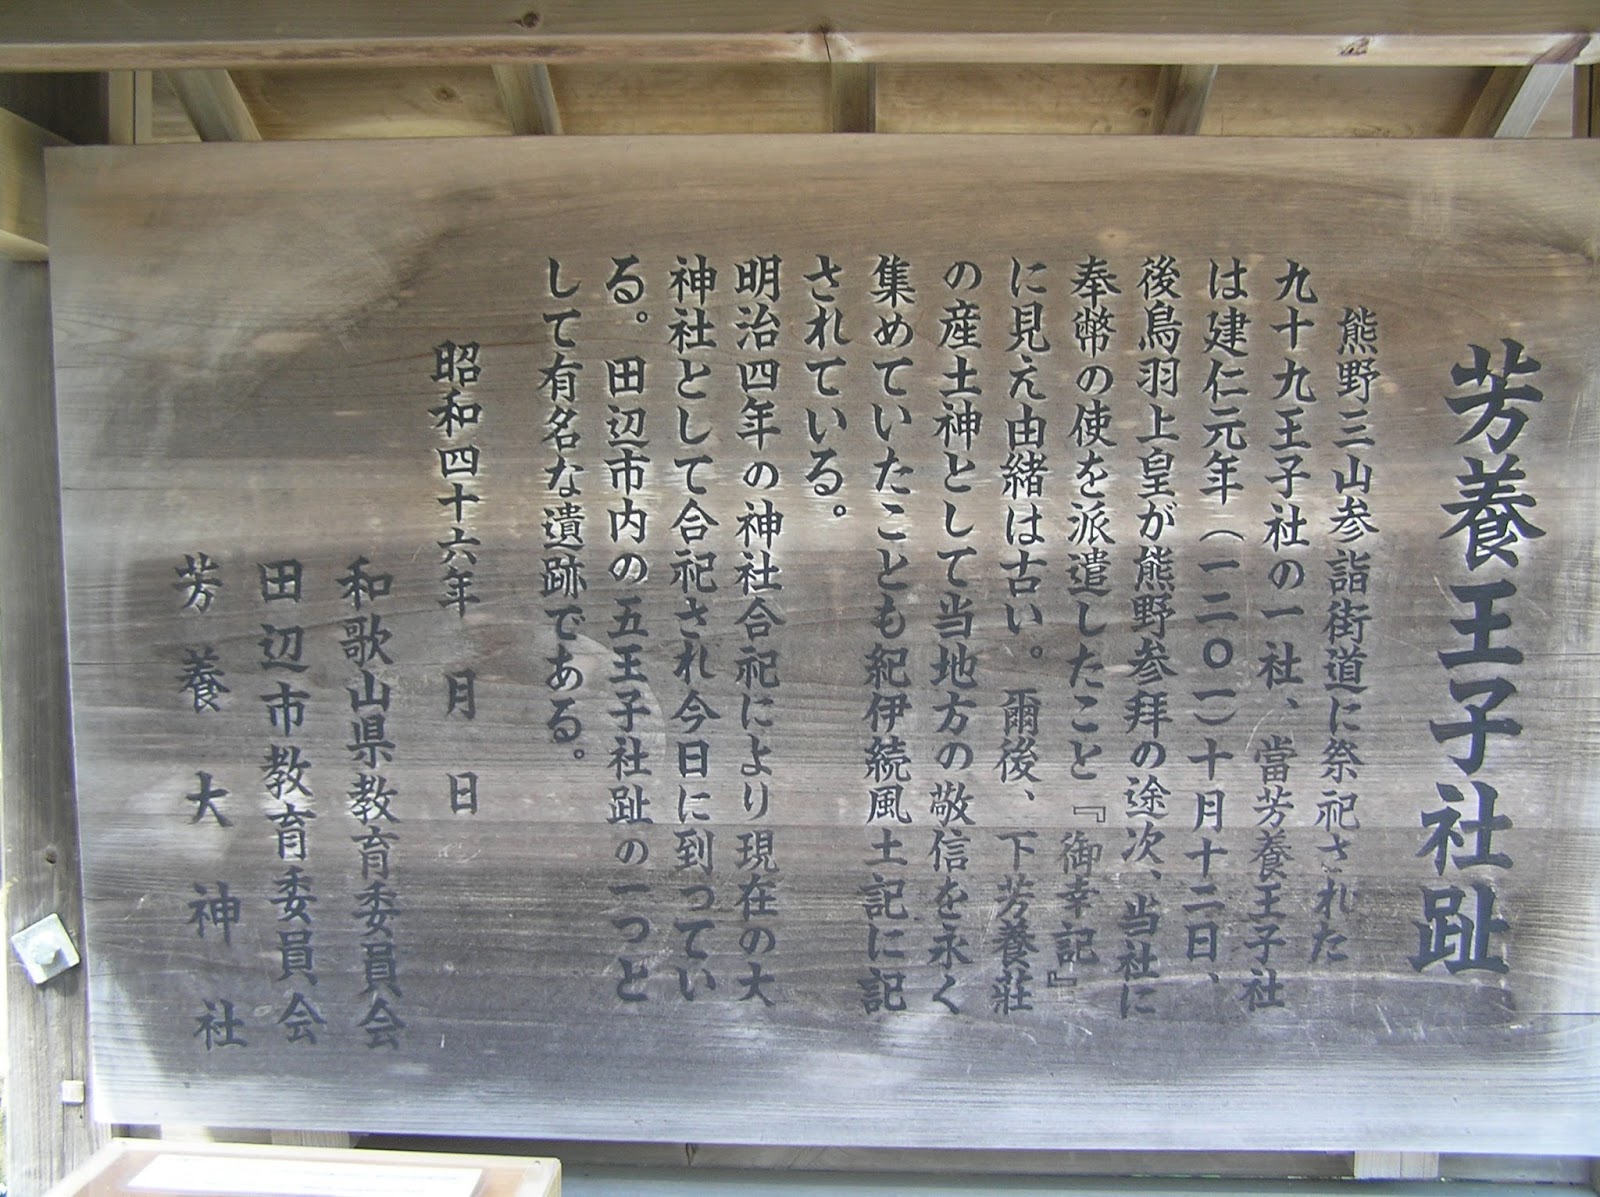 芳養王子社趾
熊野三山参詣街道に祭祀された
九十九王子社の一社、當芳養王子社
は建仁元年(一二〇一)十月十二日、
後鳥羽上皇が熊野参拜の途次、当社に
奉幣の使を派遣したこと『御幸記』
に見え由緒は古い。爾後、下芳養荘
の産土神として当地方の敬信を永く
集めていたことも紀伊続風土記に記
されている。
明治四年の神社合祀により現在の大
神社として合祀され今日に到ってい
る。田辺市内の五王子社趾の一つと
して有名な遺跡である。
昭和四十六年　月　日
和歌山県教育委員会
田辺市教育委員会
芳養大神社